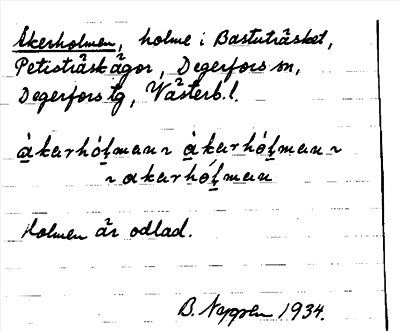 Åkerholmen, holme i Bastuträsket,
Petisträsk ägor, Degerfors sn,
Degerfors tg, Västerb. l.
åkarhólman ~ åkarhólman ~
~ akarhólman
Holmen är odlad.
B. 1934.